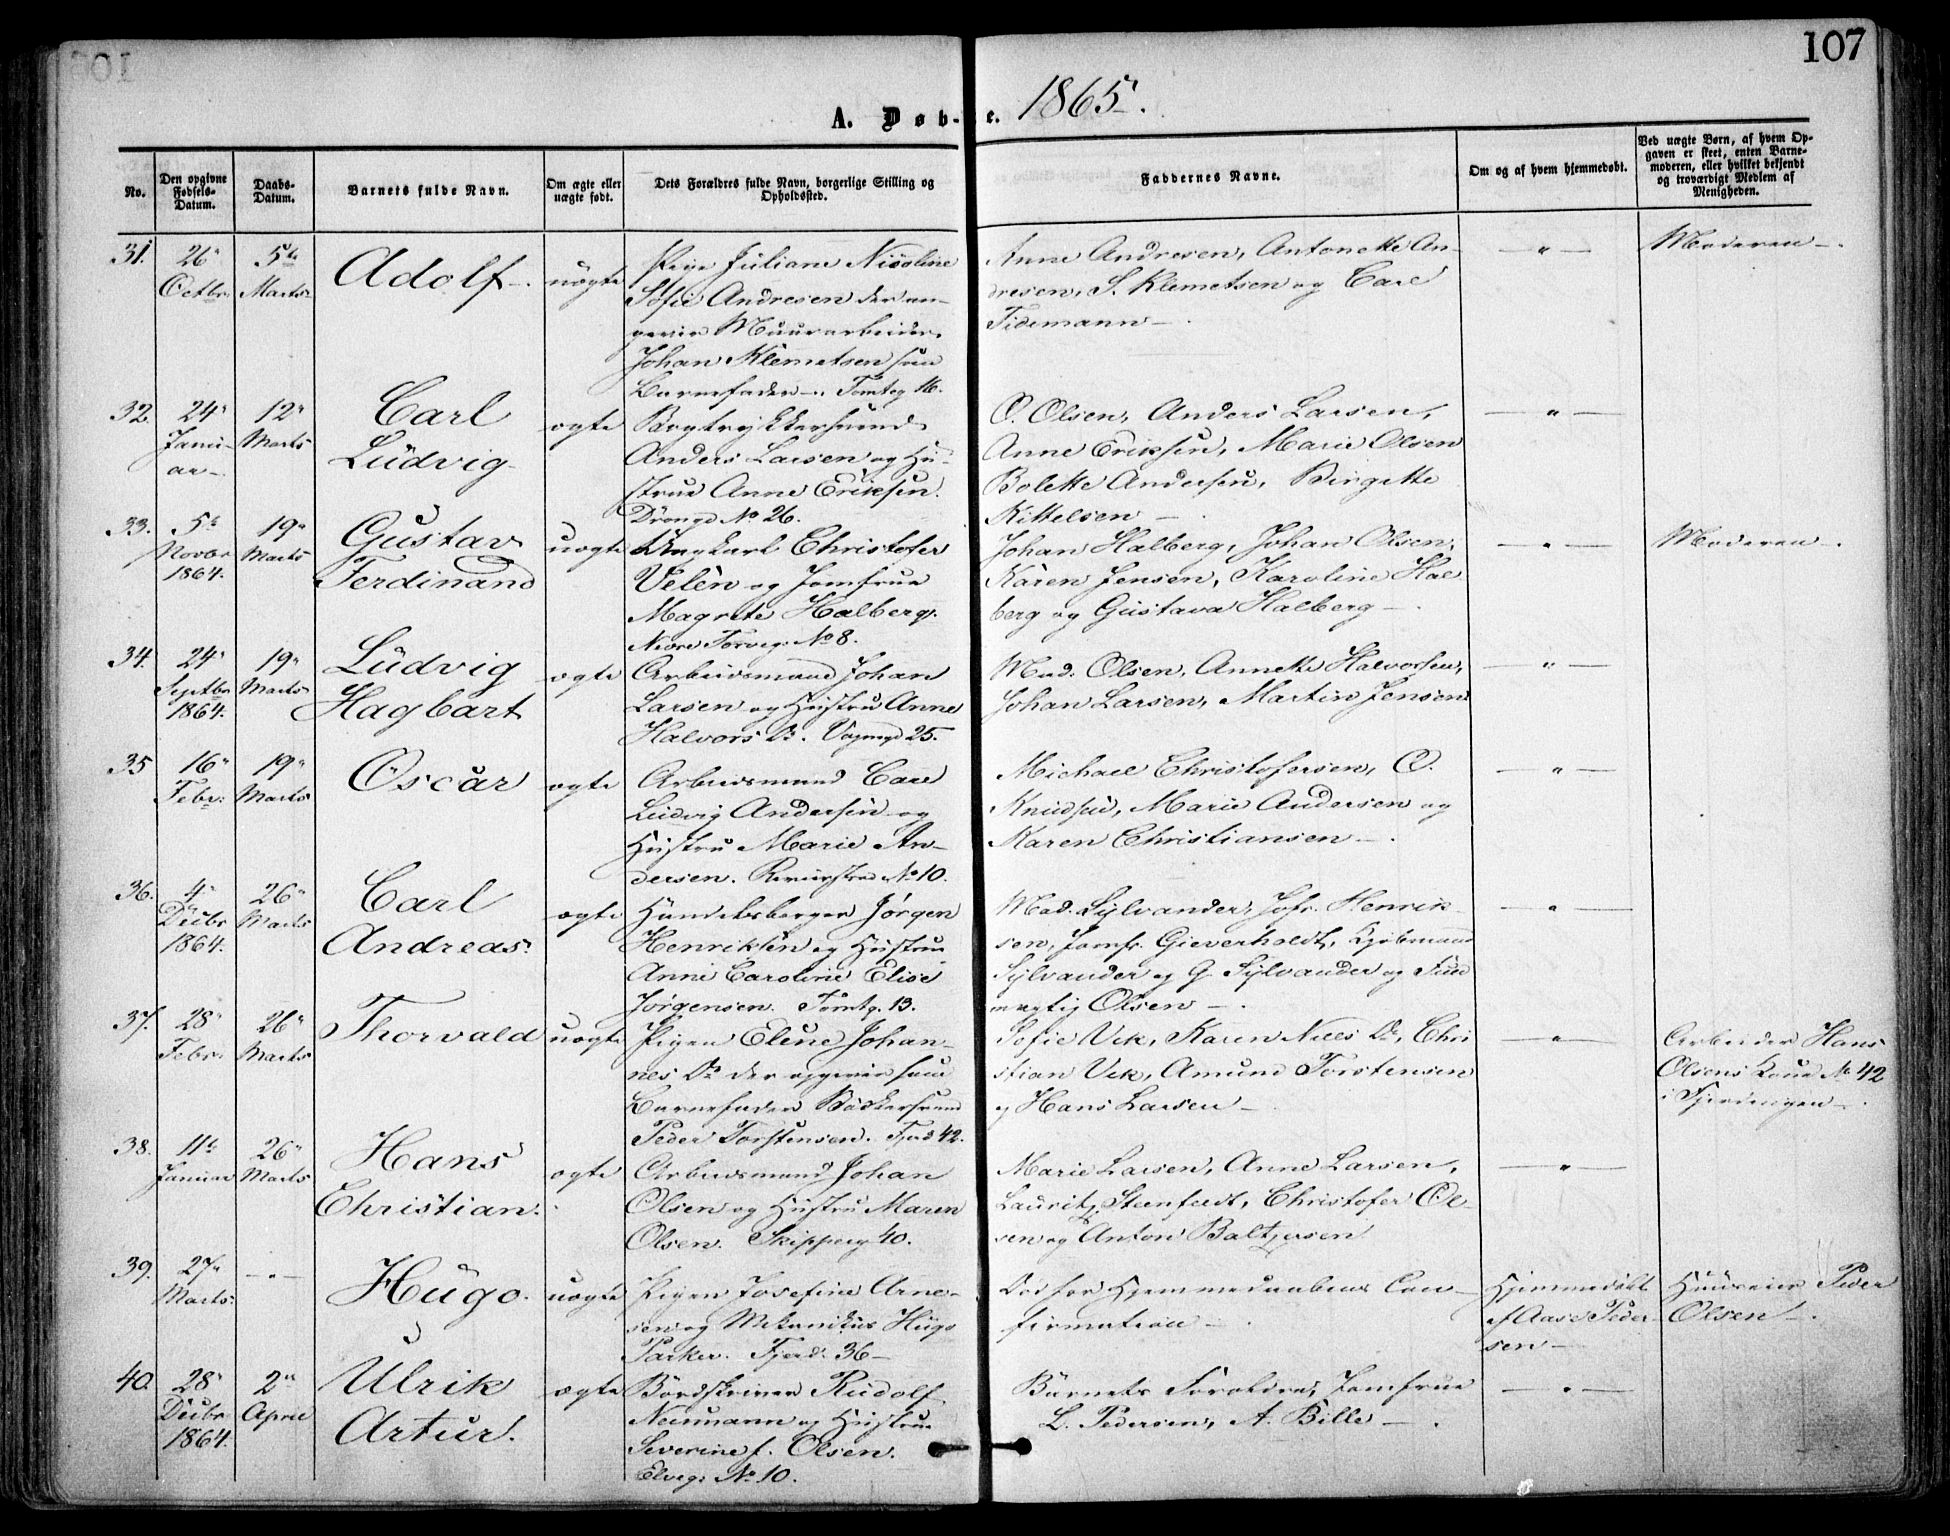 107
A. Døb- e. 1865.
No.
Den opgivne
Fødsels-
Datum.
Daabs-
Datum.
Barnets fulde Navn.
Om ægte eller
uægte født.
Dets Forældres fulde Navn, borgerlige Stilling og
Opholdssted.
Faddernes Navne.
Om og af hvem hjemmedøbt.
Ved uægte Børn, af hvem Op-
gaven er skeet, enten Barne-
moderen, eller hvilket bekjendt
og troværdigt Medlem af
Menigheden.
31.
26
Octbr.
5te
Marts
Adolf
uægte
Pige Juliane Nicoline
Sofie Andresen der an-
giver Muurarbeider
Johan Klemetsen som
Barnefader. Tomteg 16.
Anne Andresen, Antonette An-
dresen, S. Klemetsen og Carl
Tidemann
"
Moderen
32.
24
Janu-
ar
12
Marts
Carl
Ludvig
ægte
Bogtrykkersvend
Anders Larsen og Hu-
strue Anne Eriksen.
Drongd No 26.
O. Olsen, Anders Larsen,
Anne Eriksen, Marie Olsen
Bolette Andersen, Birgitte
Kittelsen
"
33.
5te
Novbr
1864.
19
Marts
Gustav
Ferdinand
uægte
Ungkarl Christofer
Velén og Jomfrue
Magrete Halberg.
Nedre Torveg. No 8.
Johan Halberg, Johan Olsen,
Karen Jensen, Karoline Hal
berg og Gustava Halberg
"
Moderen
34.
24
Septbr
1864.
19
Marts
Ludvig
Hagbart
ægte
Arbeidsmand Johan
Larsen og Hustru Anne
Halvors Dr. Vognmd 25.
Mad. Olsen, Annette Halvorsen,
Johan Larsen, Martin Jensen
"
35
16
Febr.
19
Marts
Oscar
ægte
Arbeidsmand Carl
Ludvig Andersen og
Hustru Marie An-
dersen. No 10.
Michael Christofersen, O.
Knudsen, Marie Andersen og
Karen Christiansen
"
36.
4
Decbr
1864.
26
Marts
Carl
Andreas
ægte
Handelsborger Jørgen
Henriksen og Hustru
Anne Caroline Elise
Jørgensen. Tomtg. 13.
Mad. Sylvander, Jofr. Henrik-
sen, Jomfr. Gieverholdt, Kjøbmand
Sylvander og G. Sylvander og Fuld
mægtig Olsen
"
37.
28
Febr.
26
Marts
Thorvald
uægte
Pigen Elene Johan-
nes Dr. der opgiver som
Barnefader Bødkersvend
Peder Torstensen. Fjerd 42.
Sofie Vik, Karen Niels Dr, Chri
stian Vik, Amund Torstensen
og Hans Larsen
"
Arbeider Hans
Olsens Kone No 42
i Fjerdingen
38.
11te
Januar
26
Marts
Hans
Christian.
ægte
Arbeidsmand Johan
Olsen og Hustru Maren
Olsen. Skipperg 40.
Marie Larsen, Anne Larsen,
Lauritz Steenfeldt, Christofer Ol-
sen og Anton Baltzersen
"
39.
27
Marts
"
Hugo.
uægte
Pigen Josefine Arne-
sen og Mekanikus Hugo
Parker. Fjerd. 36
Død før Hjemmedaabens Con-
firmation
Hjemmedøbt
af Aase Peder-
sen
Huuseier Peder
Olsen
40.
28
Decbr
1864.
2den
April
Ulrik
Artur.
ægte
Bordskriver Rudolf
Neumann og Hustru
Severine f. Olsen.
Elveg. No 10.
Barnets Forældre, Jomfrue
L. Pedersen, A. Bille
"